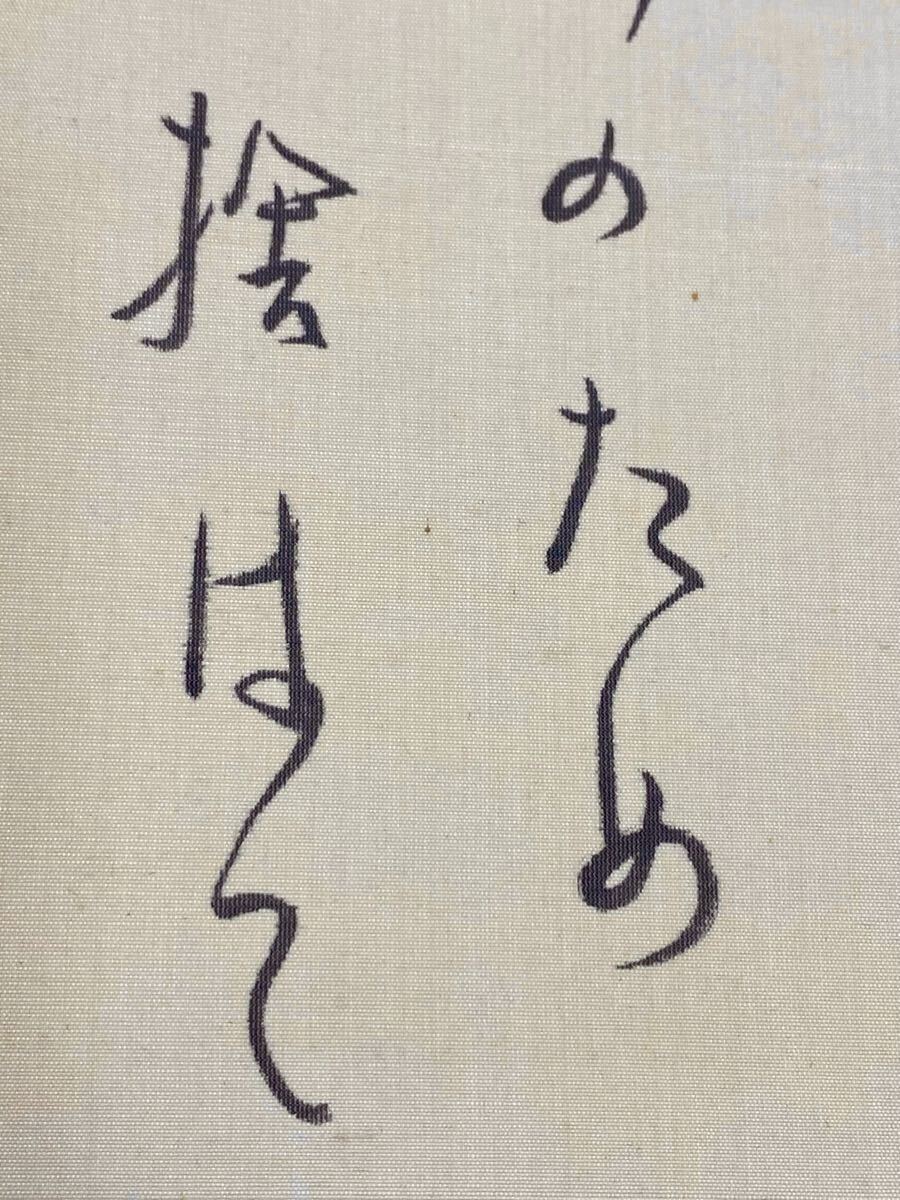 のため
捨はて